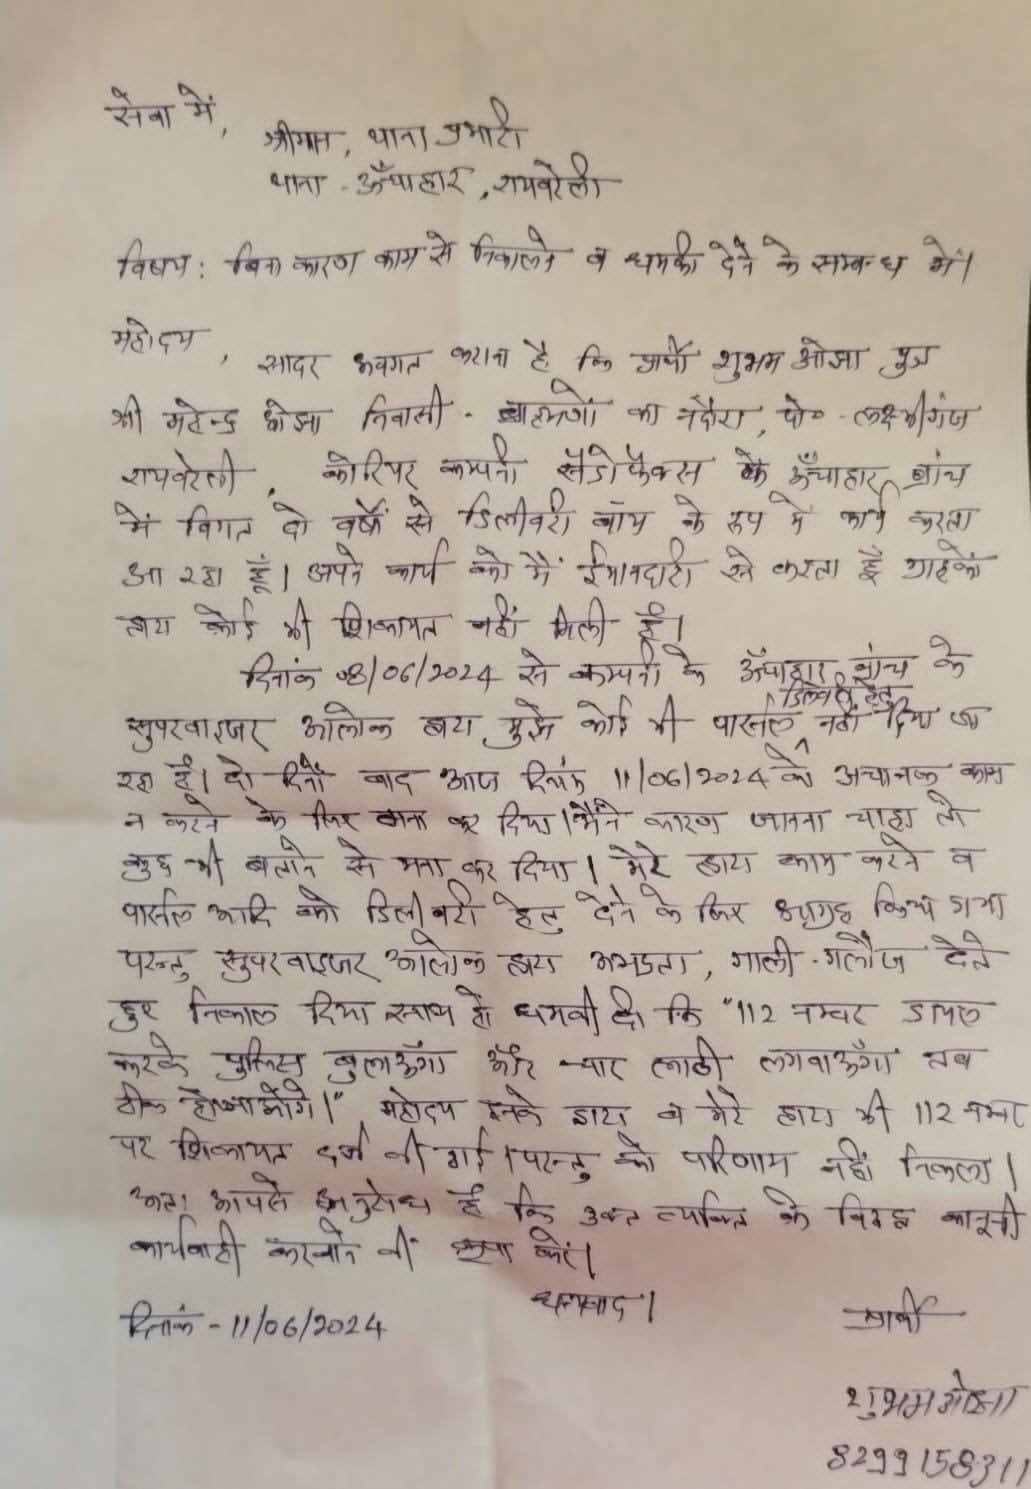 सेवा में,
श्रीमान, थाना प्रभारी
थाना - ऊँचाहार, रायबरेली
विषय: बिना कारण काम से निकालने व धमकी देने के सम्बन्ध में।
महोदय,
सादर अवगत कराना है कि प्रार्थी शुभम ओझा पुत्र
श्री महेन्द्र ओझा निवासी - ब्राह्मणों का, पो० - लक्ष्मीगंज
रायबरेली, कोरियर कम्पनी के ऊँचाहार ब्रांच
में विगत दो वर्षों से डिलीवरी बॉय के रूप में कार्य करता
आ रहा हूँ। अपने कार्य को मैं ईमानदारी से करता हूँ ग्राहकों
द्वारा कोई भी शिकायत नहीं मिली है।
दिनांक 08/06/2024 से कम्पनी के ऊँचाहार ब्रांच के
सुपरवाइजर आलोक द्वारा मुझे कोई भी पार्सल डिलिवरी हेतु नहीं दिया जा
रहा है। दो दिनों बाद आज दिनांक 11/06/2024 को अचानक काम
न करने के लिए मना कर दिया। मैंने कारण जानना चाहा तो
कुछ भी बताने से मना कर दिया। मेरे द्वारा काम करने व
पार्सल आदि को डिलीवरी हेतु देने के लिए आग्रह किया गया
परन्तु सुपरवाइजर आलोक द्वारा अभद्रता, गाली-गलौज देते
हुए निकाल दिया साथ ही धमकी दी कि "112 नम्बर डायल
करके पुलिस बुलाऊँगा और चार लाठी लगवाऊँगा तब
ठीक हो जाओगे।" महोदय इनके द्वारा व मेरे द्वारा भी 112 नम्बर
पर शिकायत दर्ज की गई। परन्तु को परिणाम नहीं निकला।
अतः आपसे अनुरोध है कि उक्त व्यक्ति के विरुद्ध कानूनी
कार्यवाही करवाने की कृपा करें।
धन्यवाद।
दिनांक - 11/06/2024
प्रार्थी
शुभम ओझा
8299158311